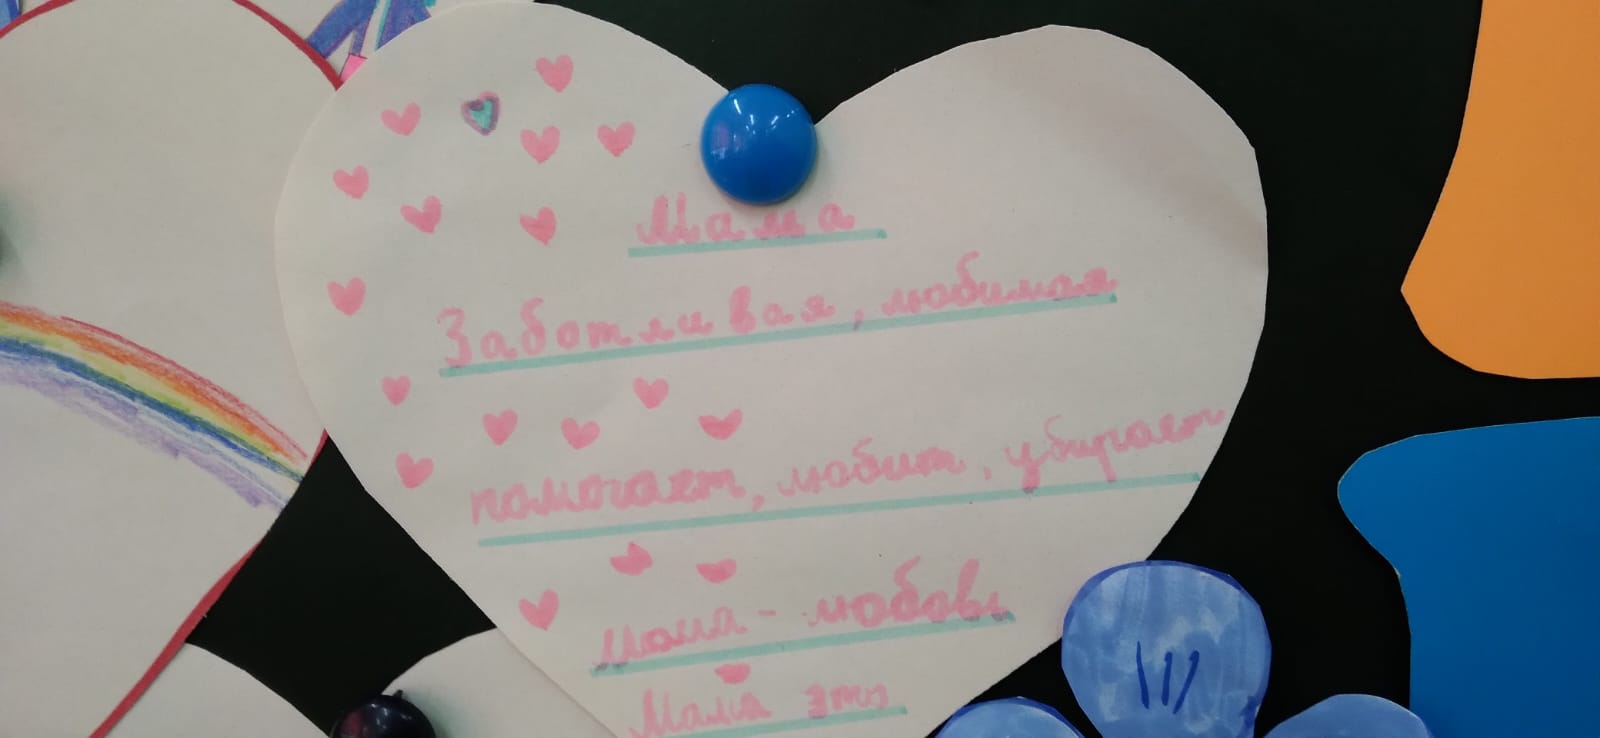 Мама
Заботливая, любимая
помогает, любит, убирает
Мама - любовь
Мама это